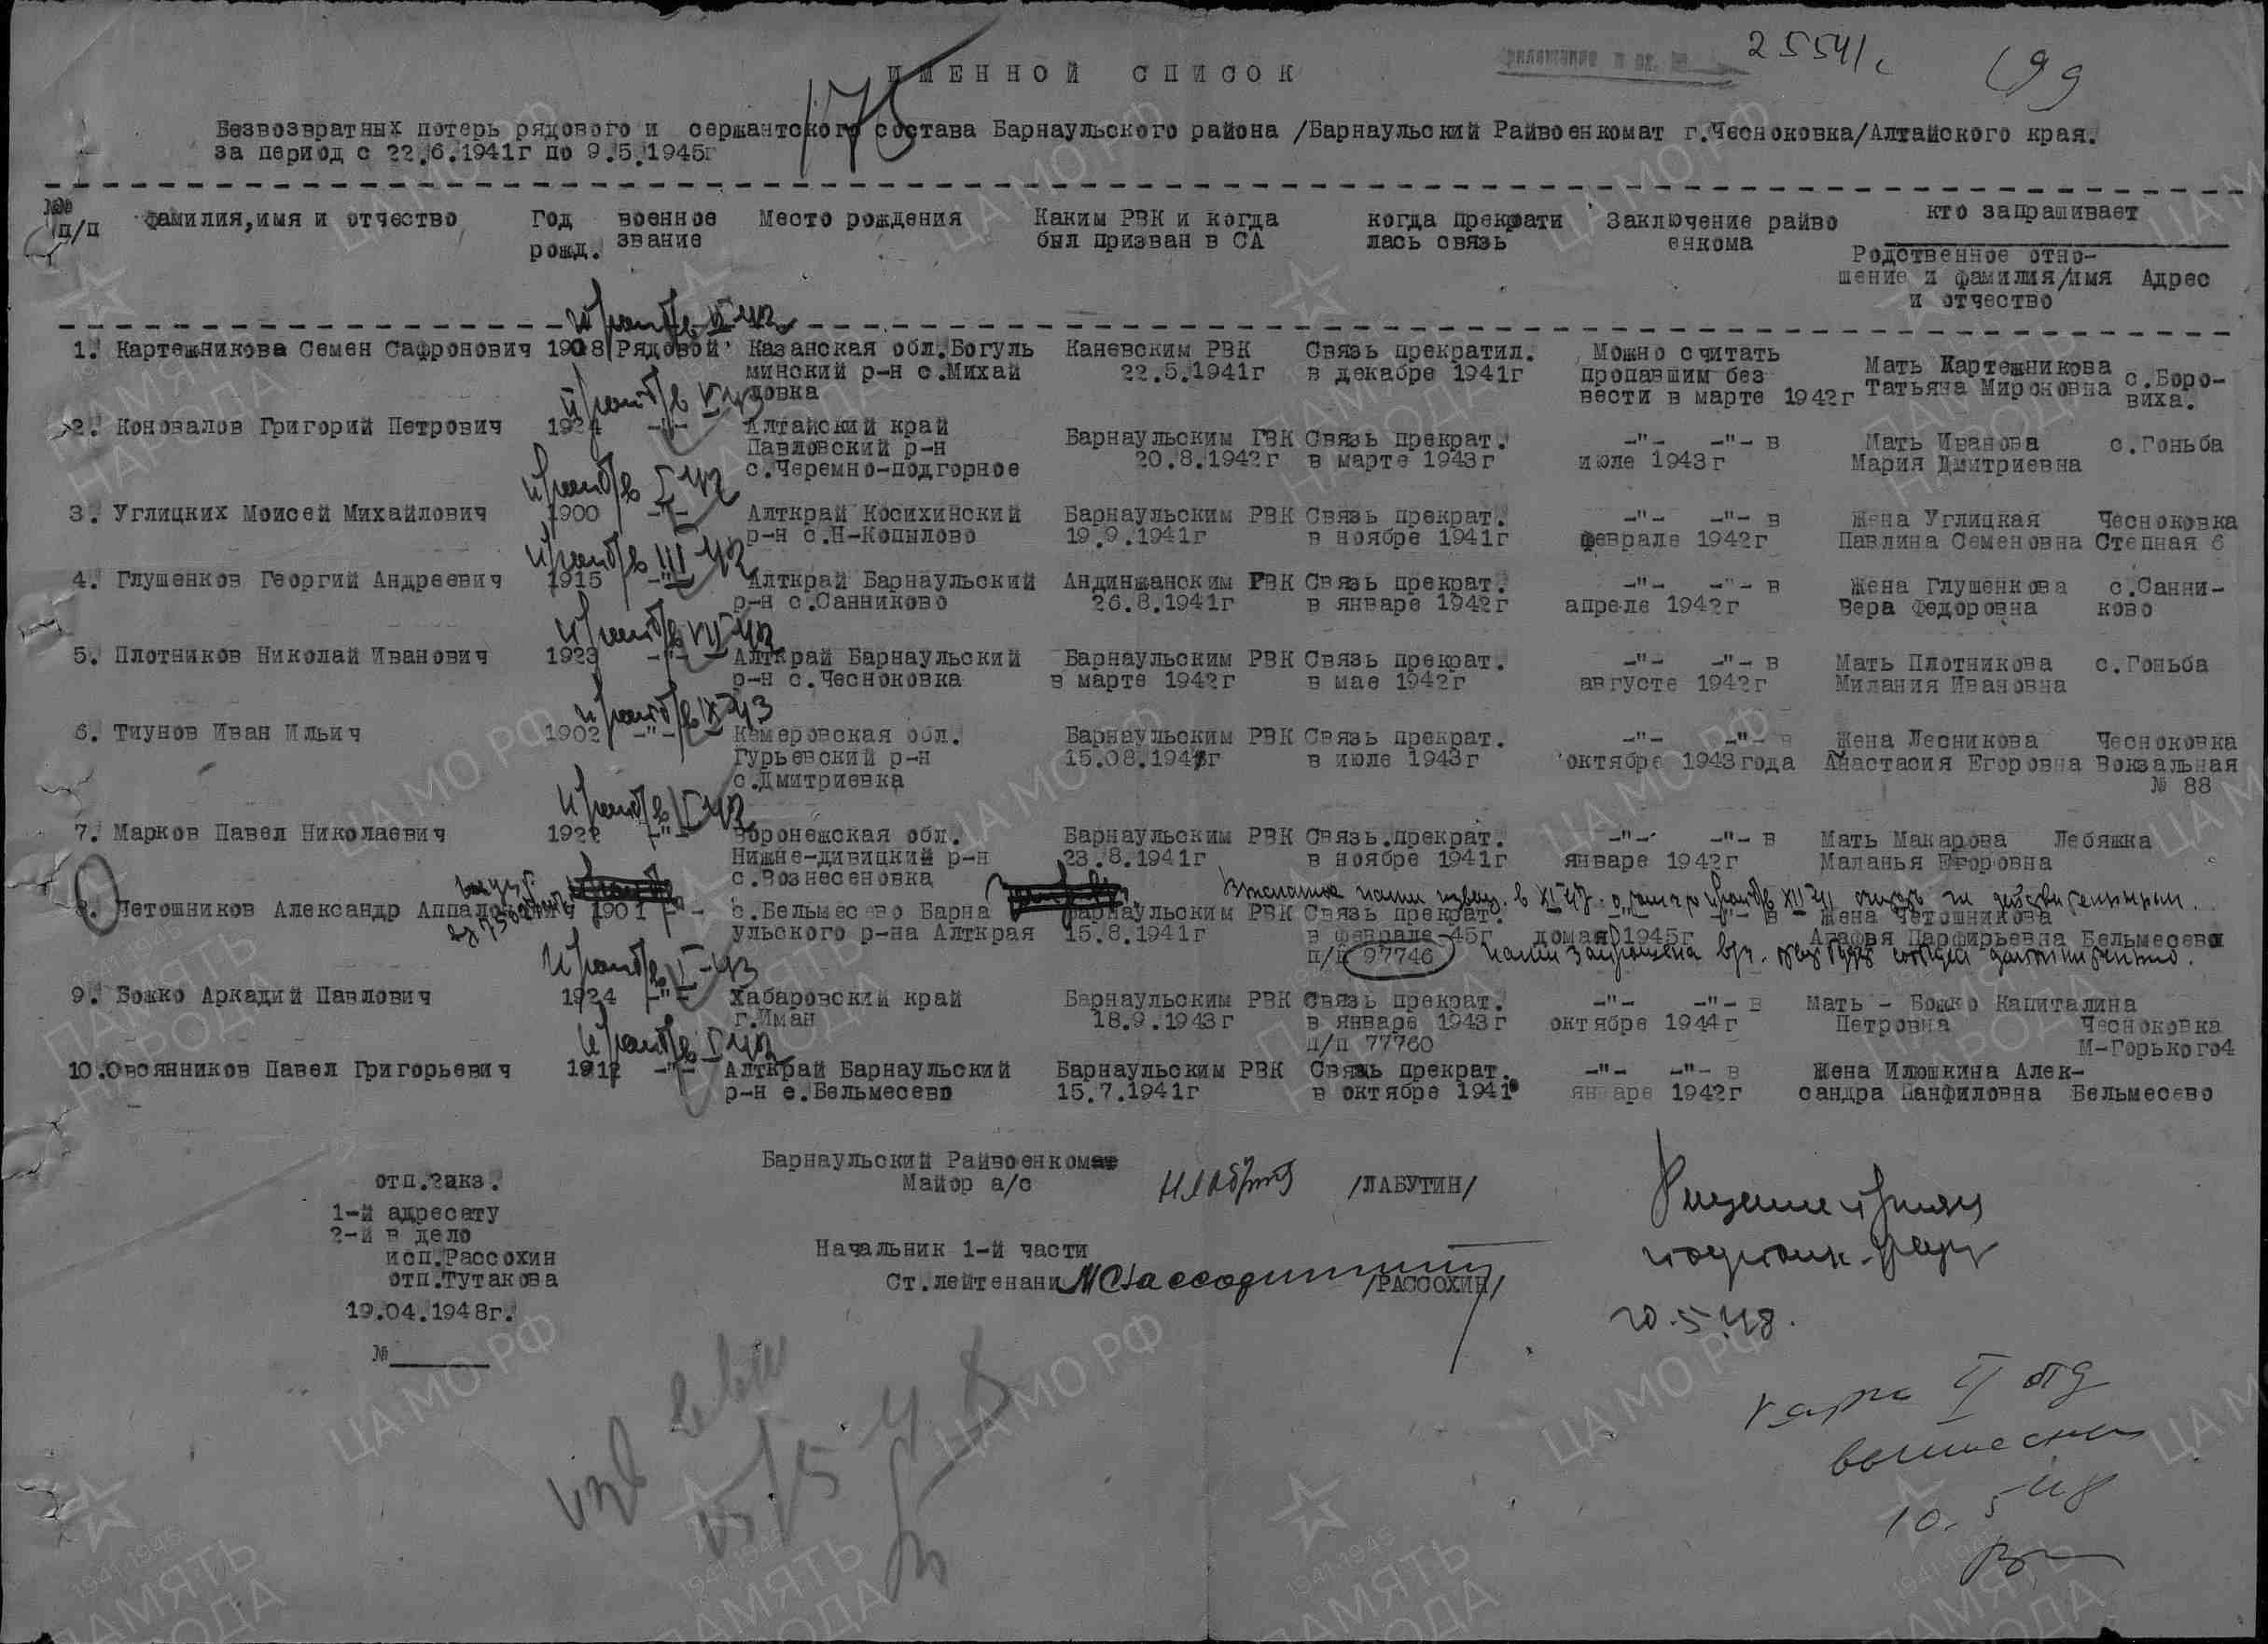 25541с
199
ИМЕННОЙ СПИСОК
175
Безвозвратных потерь рядового и сержантского состава Барнаульского района /Барнаульский Райвоенкомат г.Чесноковка/Алтайского края.
за период с 22.6.1941г по 9.5.1945г
№№ п/п фамилия,имя и отчество Год рожд. военное звание Место рождения Каким РВК и когда был призван в СА когда прекрати лась связь Заключение райво енкома кто запрашивает
Родственное отно- шение и фамилия/имя и отчество Адрес
1. Картежникова Семен Сафронович 1908 Рядовой Казанская обл.Богуль Каневским РВК Связь прекратил. Можно считать Мать Картежникова
минский р-н с.Михай 22.5.1941г в декабре 1941г пропавшим без Татьяна Мироновна с.Боро-
ловка вести в марте 1942г виха.
2. Коновалов Григорий Петрович 1924 -"- Алтайский край Барнаульским РВК Связь прекрат. -"- -"- в Мать Иванова с.Гоньба
Павловский р-н 20.8.1942г в марте 1943г июле 1943г Мария Дмитриевна
с.Черемно-подгорное
3. Углицких Моисей Михайлович 1900 -"- Алткрай Косихинский Барнаульским РВК Связь прекрат. -"- -"- в Жена Углицкая Чесноковка
р-н с.Н-Копылово 19.9.1941г в ноябре 1941г феврале 1942г Павлина Семеновна Степная 6
4. Глушенков Георгий Андреевич 1915 -"- Алткрай Барнаульский Андинжанским РВК Связь прекрат. -"- -"- в Жена Глушенкова с.Санни-
р-н с.Санниково 26.8.1941г в январе 1942г апреле 1942г Вера Федоровна ково
5. Плотников Николай Иванович 1923 -"- Алткрай Барнаульский Барнаульским РВК Связь прекрат. -"- -"- в Мать Плотникова с.Гоньба
р-н с.Чесноковка в марте 1942г в мае 1942г августе 1942г Милания Ивановна
6. Тиунов Иван Ильич 1902 -"- Кемеровская обл. Барнаульским РВК Связь прекрат. -"- -"- в Жена Лесникова Чесноковка
Гурьевский р-н 15.08.194 г в июле 1943г октябре 1943года Анастасия Егоровна Вокзальная
с.Дмитриевка № 88
7. Марков Павел Николаевич 1922 -"- Воронежская обл. Барнаульским РВК Связь.прекрат. -"- -"- в Мать Макарова Лебяжка
Нижне-дивицкий р-н 23.8.1941г в ноябре 1941г январе 1942г Маланья Егоровна
с.Вознесеновка
8. Четошников Александр 1901 -"- с.Бельмесево Барна Барнаульским РВК Связь прекрат. -"- в Жена Четошникова
ульского р-на Алткрая 15.8.1941г в феврале-45г 1945г Агафья Парфирьевна Бельмесево
п/п 97746
9. Божко Аркадий Павлович 1924 -"- Хабаровский край Барнаульским РВК Связь прекрат. -"- -"- в мать - Божко Капиталина
г.Иман 18.9.1943г в январе 1943г октябре 1944г Петровна Чесноковка
п/п 77760 М-Горького4
10.Овсянников Павел Григорьевич 1912 -"- Алткрай Барнаульский Барнаульским РВК Связь прекрат. -"- -"- в Жена Илюшкина Алек-
р-н с.Бельмесево 15.7.1941г в октябре 1941 январе 1942г сандра Панфиловна Бельмесево
Барнаульский Райвоенком
Майор а/с /ЛАБУТИН/
Начальник 1-й части
Ст.лейтенант /РАССОХИН/
отп.2экз.
1-й адресату
2-й в дело
исп.Рассохин
отп.Тутакова
19.04.1948г.
№
20.5.48.
10.5 48
ЦА МО РФ
1941-1945
ПАМЯТЬ
НАРОДА